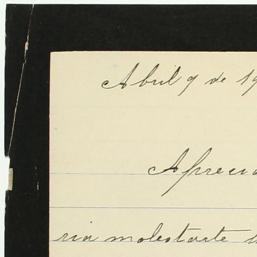 Abril 9 de 19
Aprecia
ria molestarte